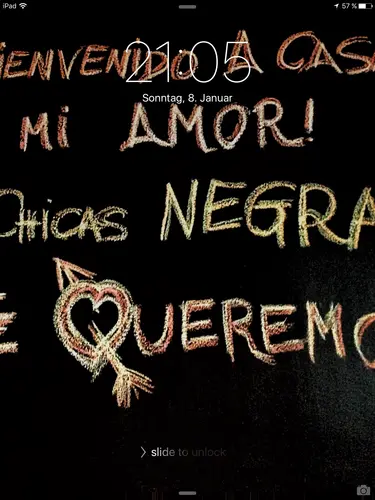 iPad 57 %
IENVENIDO A CAS
21:05
Sonntag, 8. Januar
MI AMOR!
CHICAS NEGRA
E QUEREMO
slide to unlock